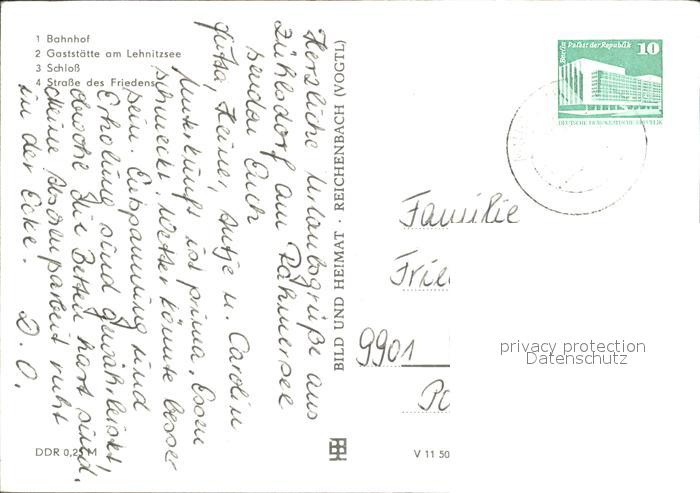 1 Bahnhof
2 Gaststätte am Lehnitzsee
3 Schloß
4 Straße des Friedens
Herzliche Urlaubsgrüße aus
Zühlsdorf am Rahmersee
senden Euch
Jutta, Heiner, Antje u. Carolin
Unterkunft ist prima, Essen
schmeckt, Wetter könnte besser
sein. Entspannung und
Erholung sind gewährleistet,
obwohl die Betten hart sind.
Meine Studienarbeit ruht
in der Ecke. D. O.
DDR 0,25 M
BILD UND HEIMAT · REICHENBACH (VOGTL)
V 11 50
Berlin Palast der Republik 10
DEUTSCHE DEMOKRATISCHE REPUBLIK
Familie
Frie
9901
Po
privacy protection
Datenschutz